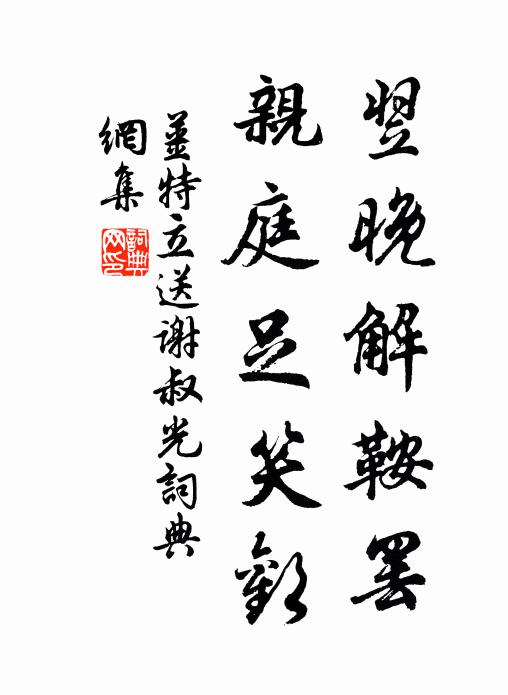 翌晚解鞍罢
親庭足笑歡
姜特立送谢叔光詞典
網集
詞典网印